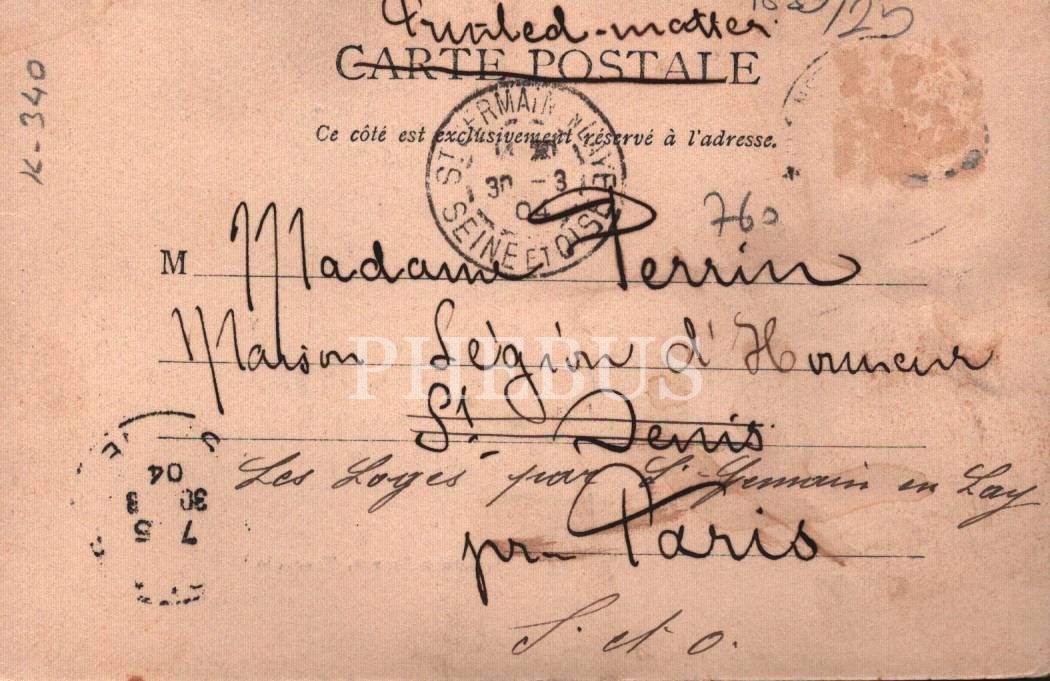 Printed-matter
CARTE POSTALE
Ce côté est exclusivement réservé à l'adresse.
K-340
ST GERMAIN EN LAYE
30 - 3
04
SEINE ET OISE
760
M Madame Perrin
Maison Légion d'Honneur
PHEBUS
St. Denis
Les Loges par St Germain en Lay
pr Paris
S. et O.
7 5
30 3
04